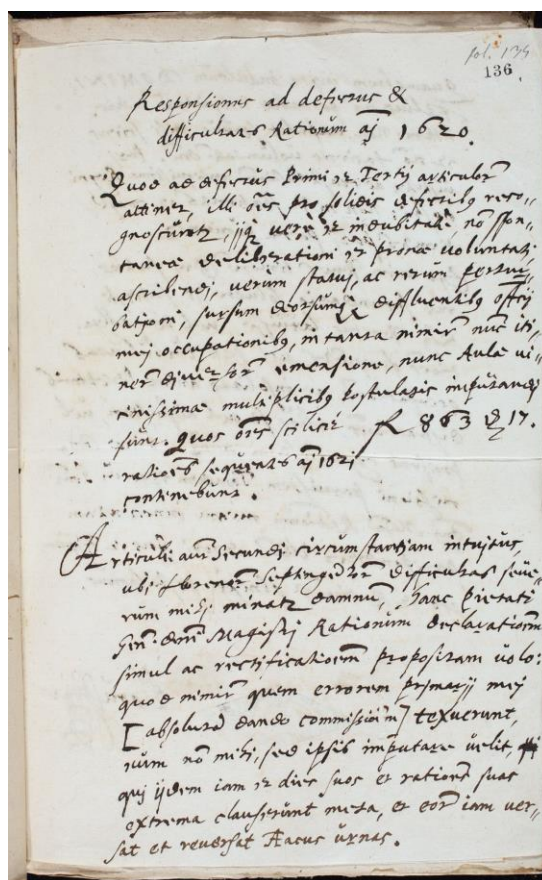 fol. 135
136.
Responsiones ad defectus &
difficultates Rationum aj 1620.
Quod ad defectus Primi et Tertij articulor
attinet, illi oēs pro solidis defectibus reco-
gnoscuntr, qr verè et indubitatè, nō spon-
taneæ deliberationi et pronæ voluntati,
ascribendi, verum statuj, ac rerum pertur-
bationi, sursum deorsumq diffluentibus officij
mej occupationibus, in tanta nimirū nunc iti-
nerū diversorū emensione, nunc Aulæ vi-
cinissimæ multiplicibus postulatis imputandj
sunt. Quos oēs scilicet f 863 d 17.
rationēs sequentes aj 1621
continebunt.
Articuli autē Secundi circumstantiam intuitus,
ubi florenorū Septingentorū difficultas seue-
rum mihj minatr damnū, Hanc Pietati
Gen. Dnī Magistrj Rationum declarationem
simul ac rectificationem propositam uolo:
quod nimirū quem errorem primarij mej
[absolutā dando commissionem] texuerunt,
eum nō mihi, sed ipsis imputare velit,
quj ijdem iam et dies suos et rationes suas
extrema clauserunt meta, et eorū iam ver-
sat et reuersat Aeacus vrnas.